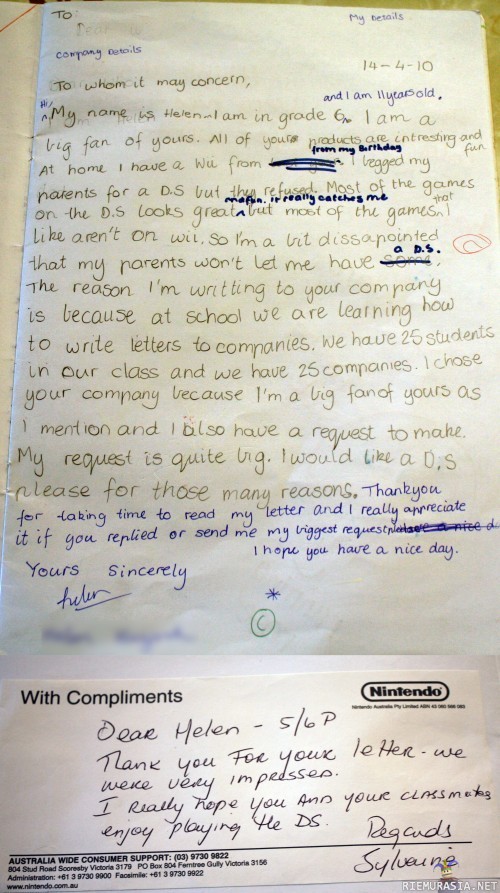 To:
My Details
Company Details
14-4-10
To whom it may concern,
and I am 11 years old.
Hi, My name is Helen. I am in grade 6. I am a
big fan of yours. All of your products are intresting and fun.
from my Birthday
At home I have a Wii from. I begged my
parents for a D.S but they refused. Most of the games
it really catches me
on the D.S looks great but most of the games that I
like aren't on wii. So I'm a bit dissapointed
a D.S.
that my parents won't let me have some.
The reason I'm writting to your company
is because at school we are learning how
to write letters to companies. We have 25 students
in our class and we have 25 companies. I chose
your company because I'm a big fan of yours as
I mention and I also have a request to make.
My request is quite big. I would like a D.S
please for those many reasons. Thankyou
for taking time to read my letter and I really appreciate
it if you replied or send me my biggest request please have a nice d
I hope you have a nice day.
Yours Sincerely
Helen
*
C
With Compliments
Nintendo
Nintendo Australia Pty Limited ABN 43 060 566 083
Dear Helen - 5/6P
Thank you for your letter - we
were very impressed.
I really hope you and your classmates
enjoy playing the DS.
Regards
Sylvaine
AUSTRALIA WIDE CONSUMER SUPPORT: (03) 9730 9822
804 Stud Road Scoresby Victoria 3179 PO Box 804 Ferntree Gully Victoria 3156
Administration: +61 3 9730 9900 Facsimile: +61 3 9730 9922
www.nintendo.com.au
RIEMURASIA.NET